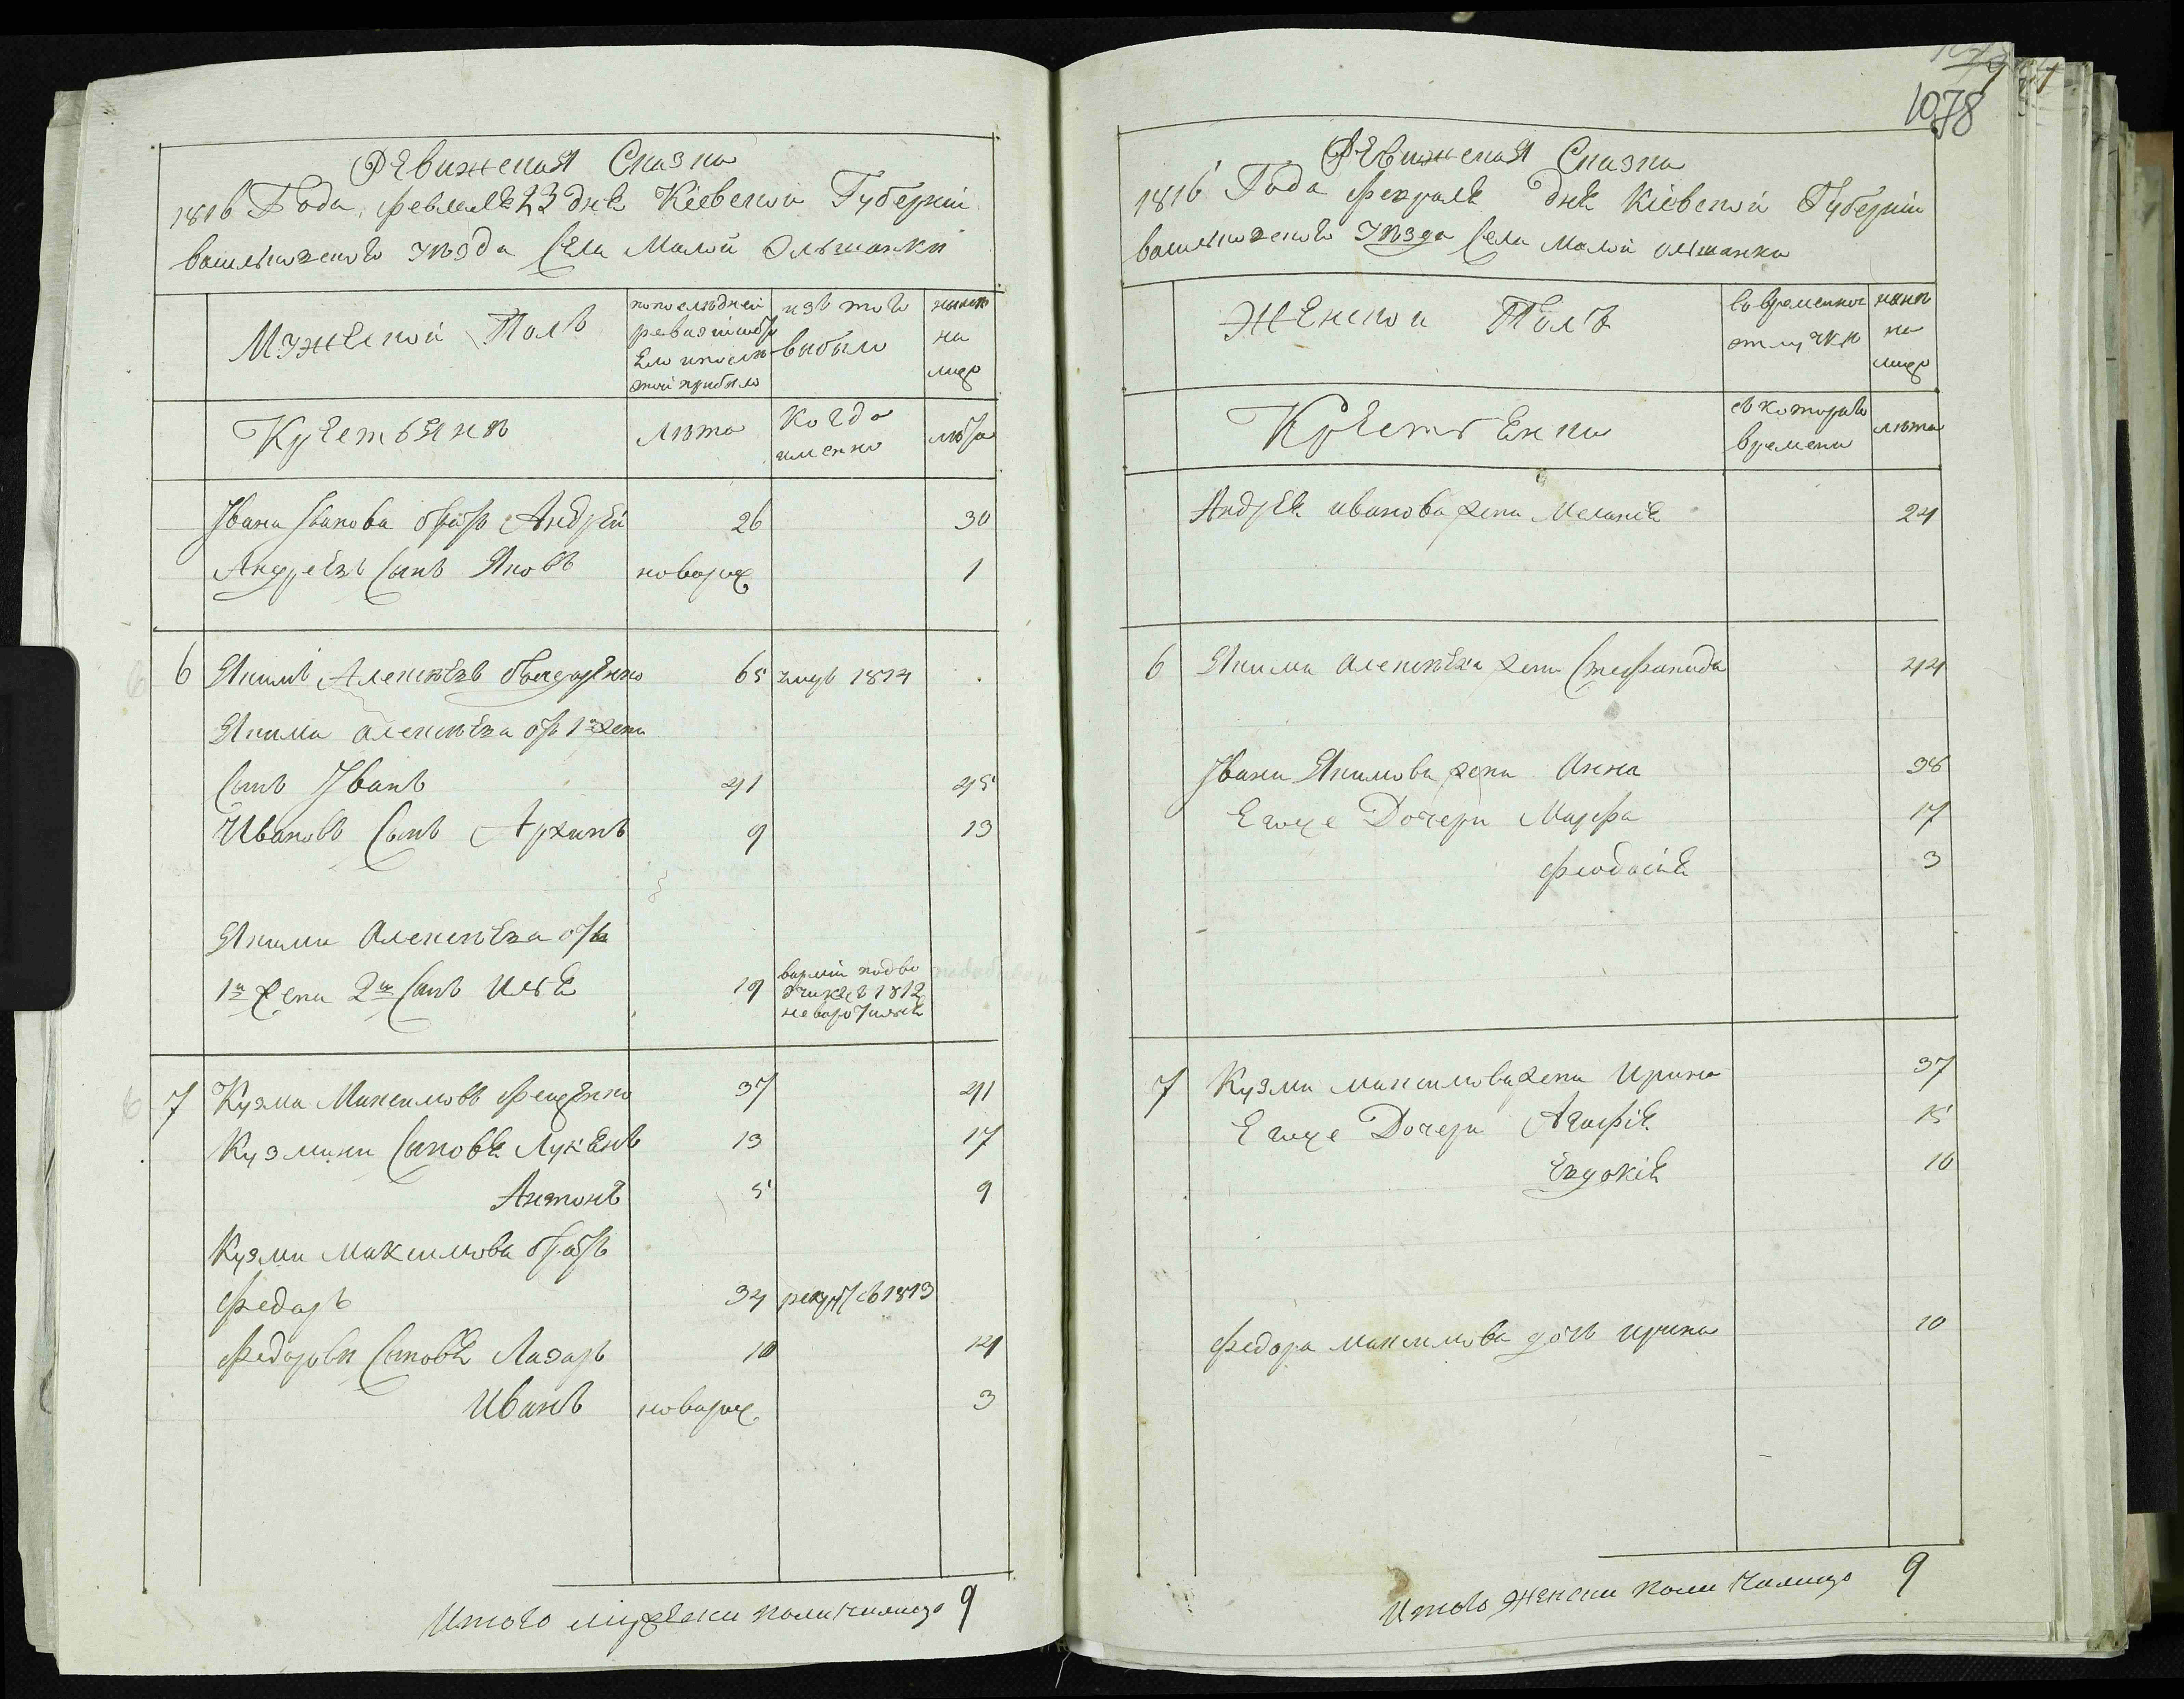 Ревижская Сказка
1816 Года, февраля 23 дня Кіевской Губерніи
васильковского уѣзда Села Малой Ольшанки
Мужеской Полъ
попослѣдней
ревизіи
изъ того
выбыло
нынѣ
на
лицо
Крестьянѣ
лѣта
когда
именно
лѣта
Івана Іванова братъ Андрѣй 26 30
Андреевъ Сынъ Яковъ новорож 1
6 Якимъ Алексѣевъ 65 умръ 1814
Якима Алексѣева отъ 1й жены
Сынъ Іванъ 41 45
Ивановъ Сынъ Архипъ 9 13
Якима Алексѣева отъ
1й жены 2й Сынъ Илья 19
7 Кузма Максимовъ Фещенко 37 41
Кузмины Сыновья Лукьянъ 13 17
Антонъ 5 9
Кузмы Максимова братъ
Федоръ 34 рекрут въ 1813
Федоровы Сыновья Лазарь 10 14
Иванъ новорож 3
Итого мужеска пола налицо 9
1078
Ревижская Сказка
1816 Года февраля дня Кіевской Губерніи
васильковского Уѣзда Села Малой ольшанки
Женской Полъ
во временной
отлучкѣ
нынѣ
на
лицо
Крестьянки
съ которого
времени
лѣта
Андрѣя иванова жена Меланія 24
6 Якима алексѣева жена Стефанида 44
Івана Якимова жена Анна 38
Егоже Дочери Марфа 17
Феодосія 3
7 Кузмы максимова жена Ирина 37
Егоже Дочери Агафія 15
Евдокія 10
Федора максимова дочь ирина 10
Итого женска пола налицо 9